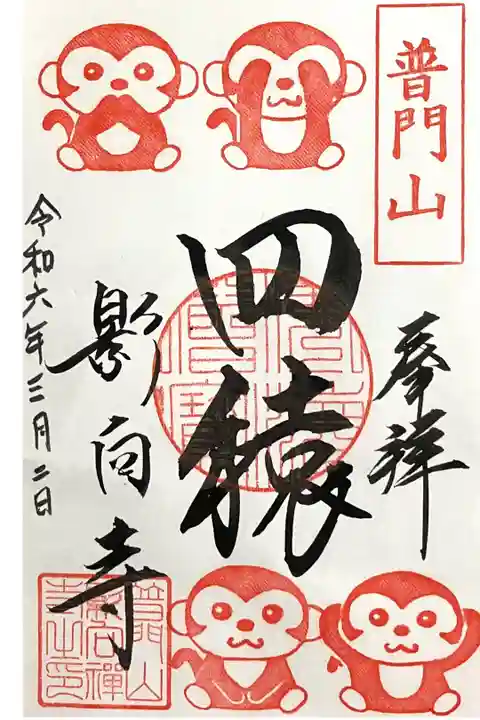 普門山
奉拝
四猿
影向寺
令和六年三月二日
普門山
影向禅
寺之印